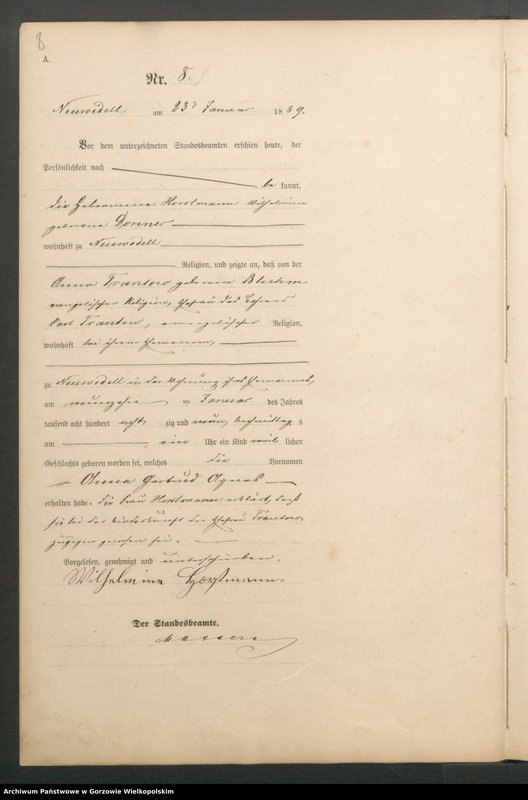 8
A.
Nr. 8.
Neuwedell am 23ten Januar 1889.
Vor dem unterzeichneten Standesbeamten erschien heute, der
Persönlichkeit nach
be kannt,
die Hebamme Horstmann Wilhelmine
geborene Donner
wohnhaft zu Neuwedell
Religion, und zeigte an, daß von der
Anna Trantow geborene
evangelischer Religion, Ehefrau des
Carl Trantow, evangelischer Religion,
wohnhaft bei ihrem Ehemanne,
zu Neuwedell in der Wohnung ihres Ehemannes,
am neunzehn ten Januar des Jahres
tausend acht hundert acht zig und neun, Nachmittag s
um ein Uhr ein Kind weib lichen
Geschlechts geboren worden sei, welches die Vornamen
Anna Gertrud Agnes
erhalten habe. Die Frau Horstmann erklärt, daß
sie bei der Niederkunft der Ehefrau Trantow
zugegen gewesen sei.
Vorgelesen, genehmigt und unterschrieben.
Wilhelmine Horstmann.
Der Standesbeamte.
Archiwum Państwowe w Gorzowie Wielkopolskim